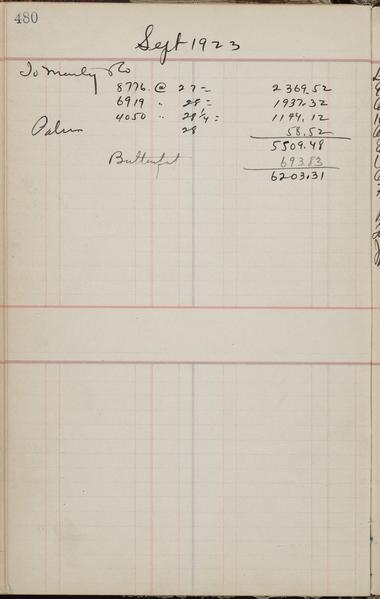 480
Sept 1923
To
8776 @ 27 = 2369.52
6919 " 28 = 1937.32
4050 " 28 1/4 = 1144.12
28 58.52
5509.48
Butterfat 693.83
6203.31